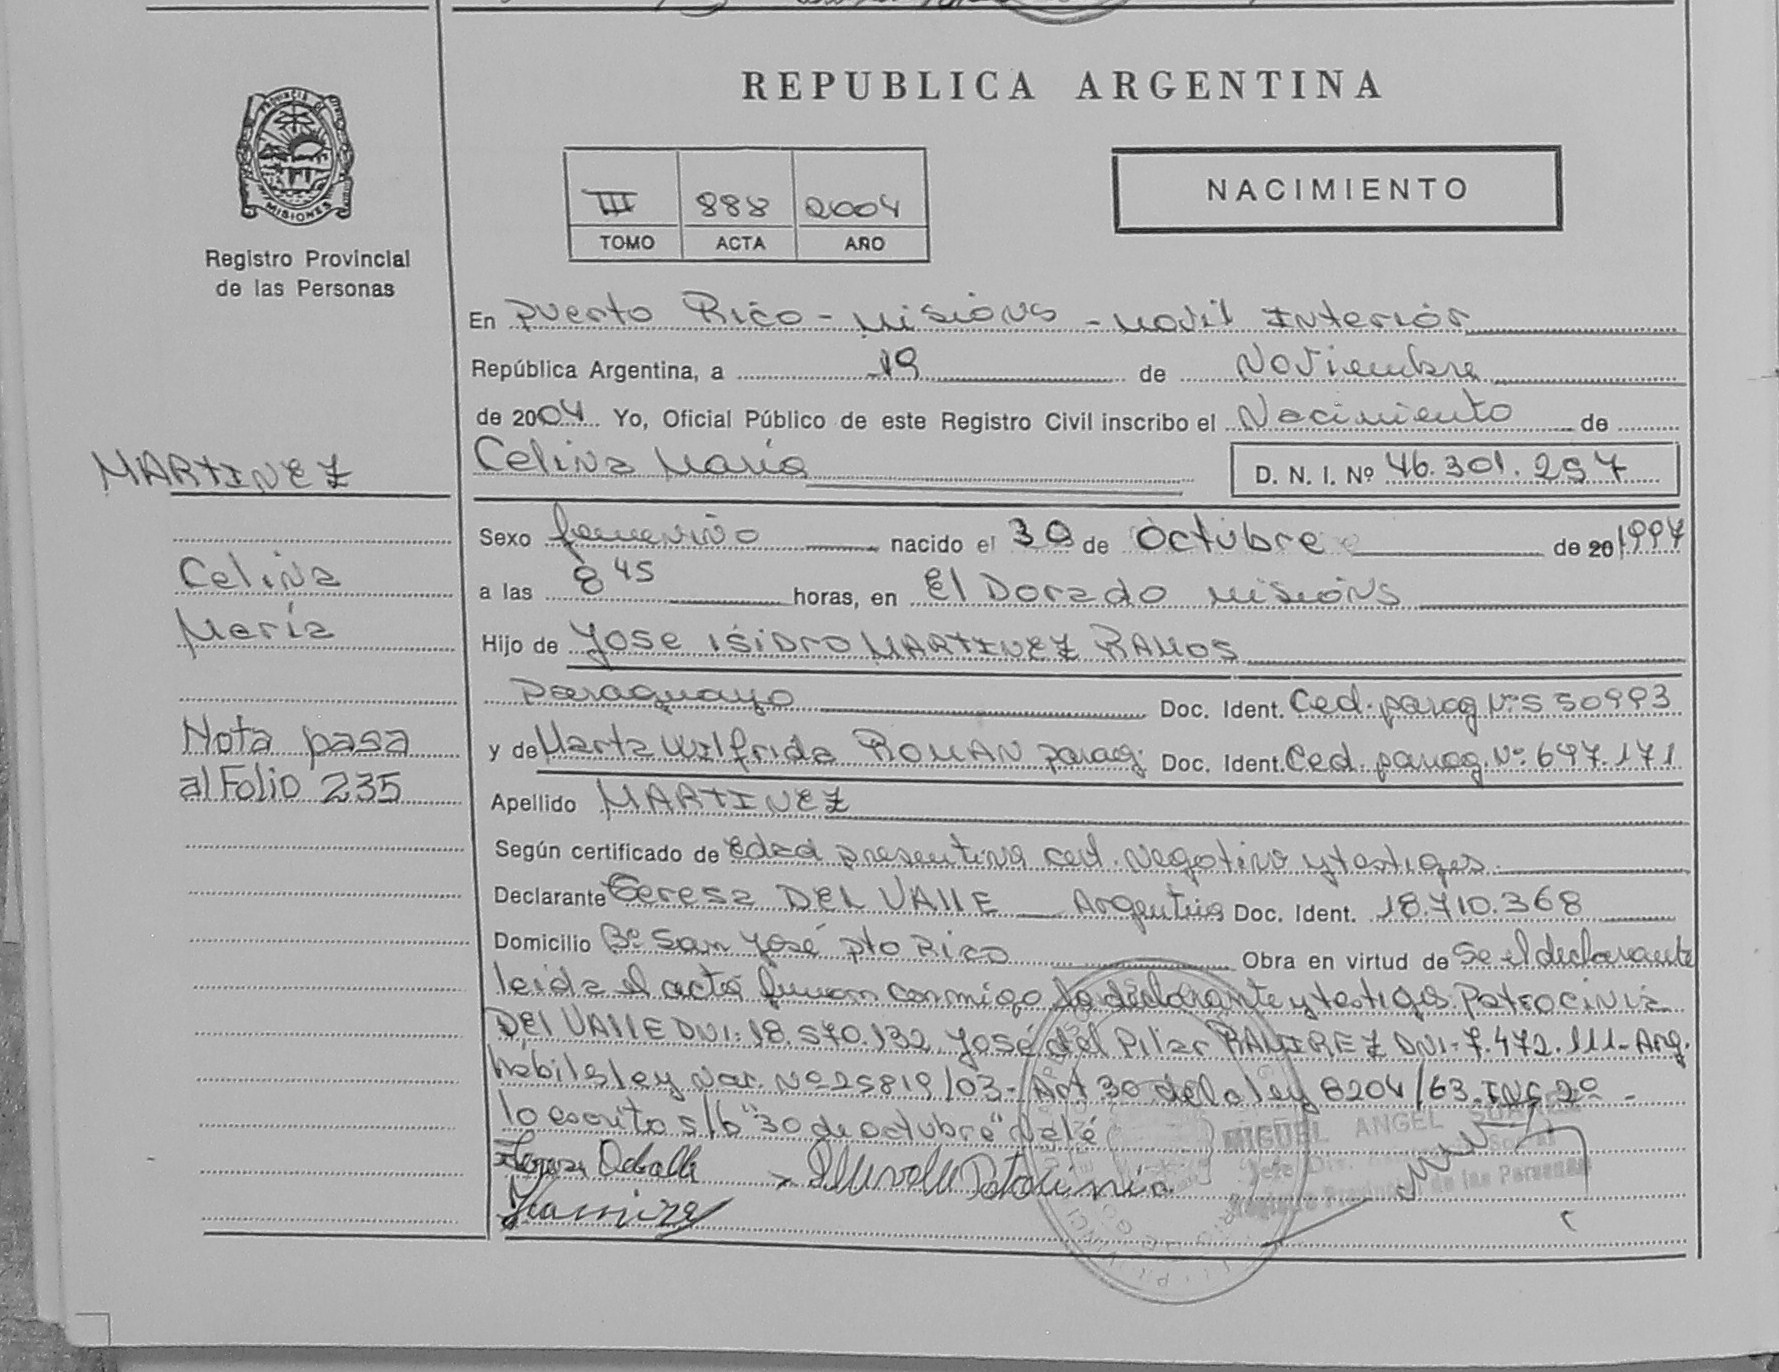 REPUBLICA ARGENTINA
PROVINCIA DE
MISIONES
Registro Provincial
de las Personas
III 888 2004
TOMO ACTA AÑO
NACIMIENTO
En Puerto Rico - Misiones - Movil Interior
República Argentina, a 19 de Noviembre
de 2004 Yo, Oficial Público de este Registro Civil inscribo el Nacimiento de
Celina María D. N. I. Nº 46.301.257
MARTINEZ
Celina
María
Nota pasa
al Folio 235
Sexo femenino nacido el 30 de Octubre de 20 1997
a las 8 45 horas, en El Dorado Misiones
Hijo de Jose Isidro MARTINEZ RAMOS
Paraguayo Doc. Ident. Ced. parag Nº 550993
y de Marta Wilfrida ROMAN parag. Doc. Ident. Ced. parag. Nº 647.171
Apellido MARTINEZ
Según certificado de edad presentiva cert. Negativo y testigos.
Declarante Teresa DEL VALLE Argentina Doc. Ident. 18.710.368
Domicilio Bº San José Pto Rico Obra en virtud de Se el declarante
leida el acta firman conmigo la declarante y testigos Patrocinia
DEl VAllE DNI: 18.570.132 José del Pilar RAMIREZ DNI- 7.472.111- Arg.
hábiles ley Nac. Nº 25819/03- Art 30 de la ley 8204/63. INC 2º -
lo escrito s/b "30 de octubre" Vale
MIGUEL ANGEL
Registro Provincial de las Personas
Ramirez